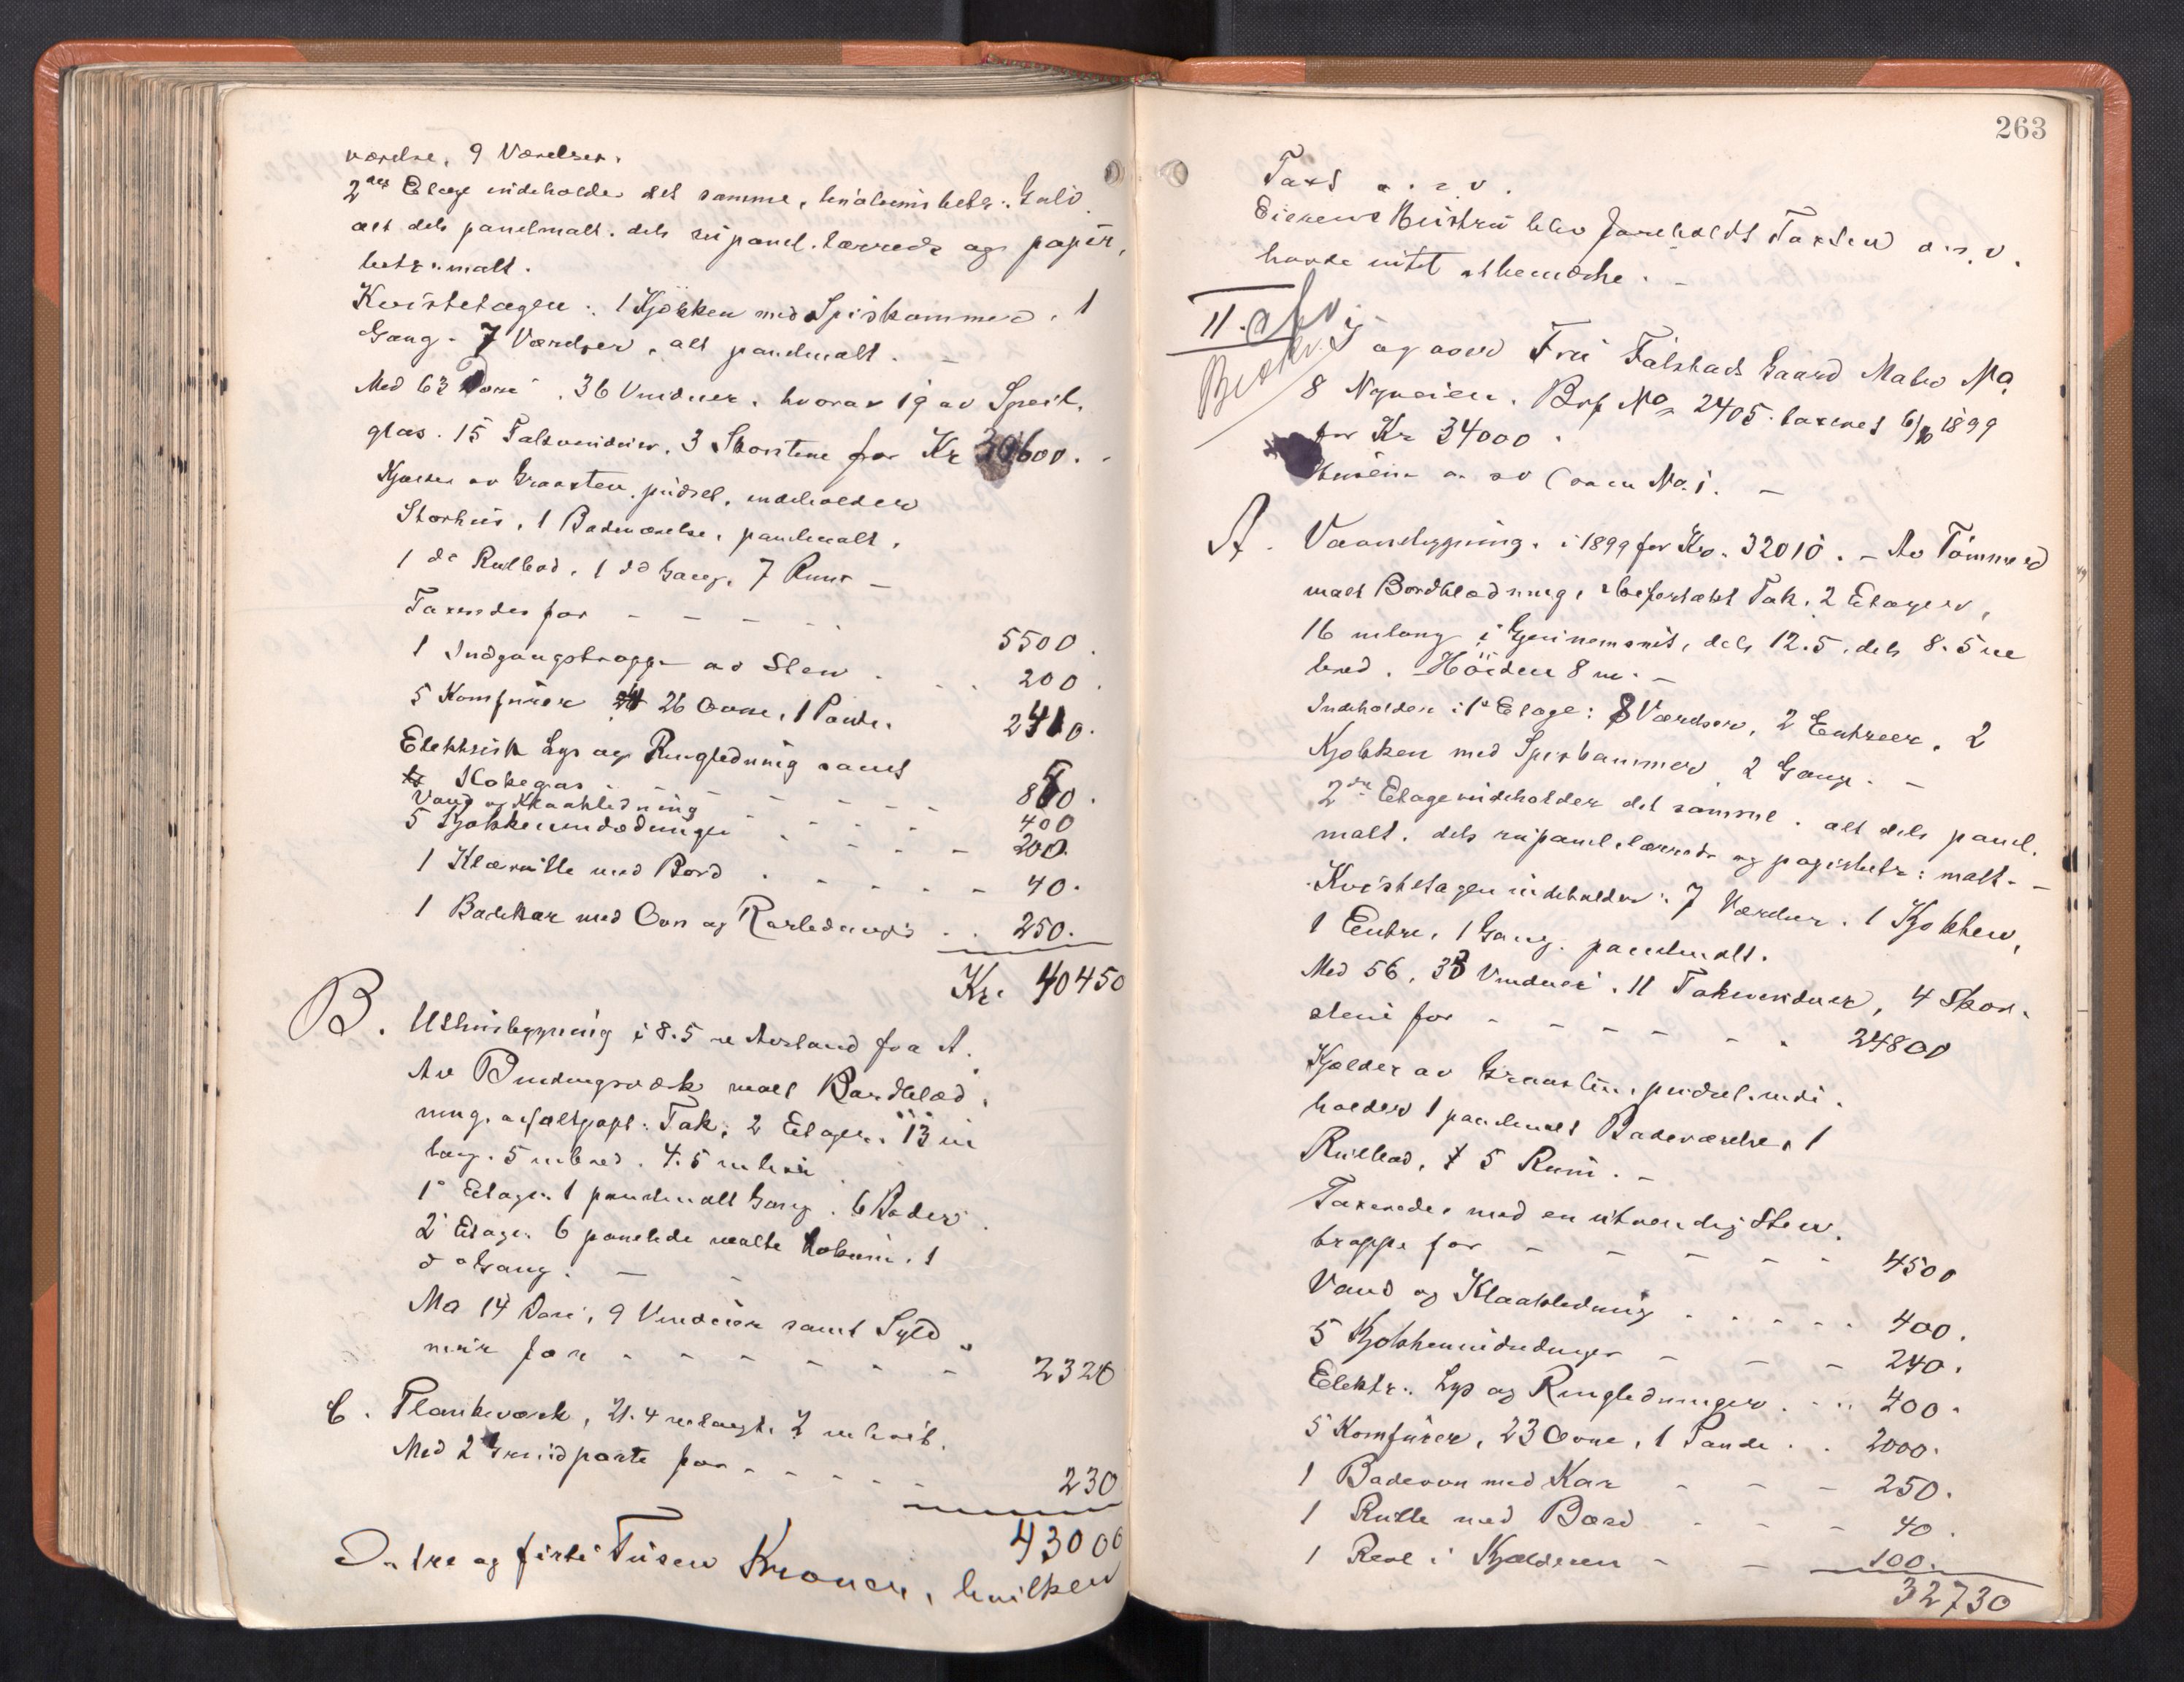 værelse, 9 Værelser.
2den Etage indeholder det samme, linoleumsbetr. Gulv
alt dels panelmalt. dels rupanel. lærreds og papir,
betr. malt.
Kvistetagen: 1 Kjøkken med Spiskammer, 1
Gang. 7 Værelser, alt panelmalt. —
Med 63 Døre, 36 Vinduer, hvorav 19 av Speil,
glas. 15 Takvinduer, 3 Skorstene for Kr 30600.
Kjelder av Graasten pudset, indeholder
Storhus, 1 Badeværelse, panelmalt,
1 do Rullbod, 1 do Gang, 7 Rum —
Taxeredes for - - - - 5500.
1 Indgangstrappe av Sten . . . 200.
5 Komfurer 26 Ovne, 1 Pande. 2410.
Elektrisk Lys og Ringledning samt
Kokegas - - - - - 850.
Vand og Kloakledning - - - 400
5 Kjøkkenindredninger - - - 200.
1 Klærulle med Bord - - - 40.
1 Badekar med Ovn og Rørledning . . 250.
Kr. 40450
B. Uthusbygning i 8.5 m Avstand fra A.
Av Bindingsværk malt Bordklæd,
ning, asfaltpapt. Tak, 2 Etager. 13 m
lang. 5 m bred. 4.5 m høi
1e Etage: 1 panelmalt Gang. 6 Boder.
2 Etage: 6 panelede malte Lokum. 1
do Gang. —
Med 14 Døre, 9 Vinduer samt Syld
mur for - - - - - - 2320
C. Plankeværk, 21.4 m langt. 2 m høit.
Med 2 Grindporte for - - - - 230
43000
Er tre og firti Tusen Kroner, hvilken
263
Taxt o. s. v.
Eierens Hustru blev foreholdt Taxten o. s. v.
havde intet at bemerke. —
II.
Beskr.
og over Fru Falstads Gaard Matr No
8 Nyveien. Brf No 2405. taxeret 6/10 1899
for Kr 34000.
Husene o. sv (som No. 1. —
A. Vaaningsbygning, i 1899 for Kr. 32010. — Av Tømmer
malt Bordklædning, skifertækt Tak. 2 Etager,
16 m lang i Gjennemsnit, dels 12.5, dels 8.5 m
bred. Høiden 8 m. —
Indeholder i 1e Etage: 8 Værelser, 2 Entreer, 2
Kjøkken med Spiskammer, 2 Gange. —
2den Etage indeholder det samme. alt dels panel.
malt. dels rupanel lærreds og papirbetr: malt. —
Kvistetagen indeholder: 7 Værelser. 1 Kjøkken,
1 Entre, 1 Gang. panelmalt.
Med 56, 33 Vinduer, 11 Takvinduer, 4 Skor-
stene for - - - - - . 24800
Kjelder av Graasten, pudset. inde.
holder 1 panelmalt Badeværelse, 1
Rullbod, 5 Rum. —
Taxeredes med en utvendig Sten.
trappe for - - - - - - 4500
Vand og Kloakledning . . . . . 400.
5 Kjøkkenindredninger - - - 240.
Elektr. Lys og Ringledninger . . . 400.
5 Komfurer, 23 Ovne, 1 Pande . . 2000.
1 Badeovn med Kar - - - 250.
1 Rulle med Bord - - - 40.
1 Reol i Kjelderen - - 100.
32730